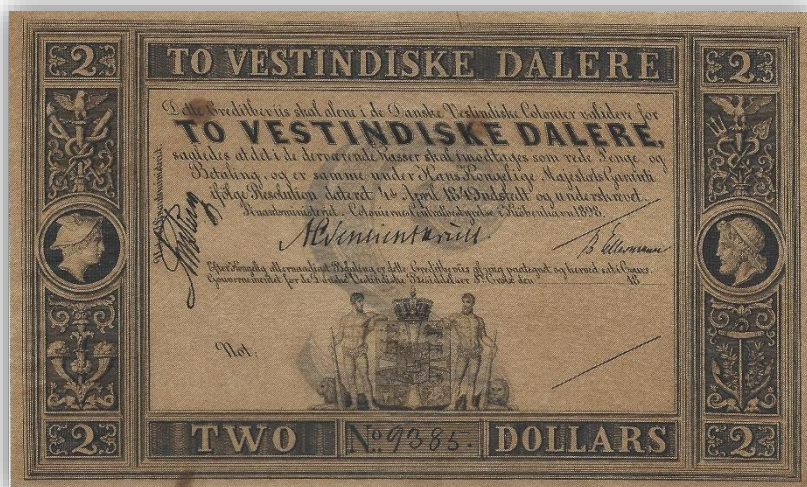 2 TO VESTINDISKE DALERE 2
Dette Creditbeviis skal alene i de Danske Vestindiske Colonier validere for
TO VESTINDISKE DALERE,
saaledes at det i de derværende Kasser skal modtages som rede Penge og
Betaling, og er samme under Hans Kongelige Majestæts Garanti
ifølge Resolution dateret 4de April 1849 udstedt og underskrevet.
Finantsministeriet. Coloniernes Centralbestyrelse i Kiöbenhavn 1898.
Efter Kongelig allernaadigst Befaling er dette Creditbeviis af mig paategnet og herved sat i Cours.
Gouvernementet for de Danske Vestindiske Besiddelser St. Croix den 18
Not:
2 TWO No. 9385. DOLLARS 2